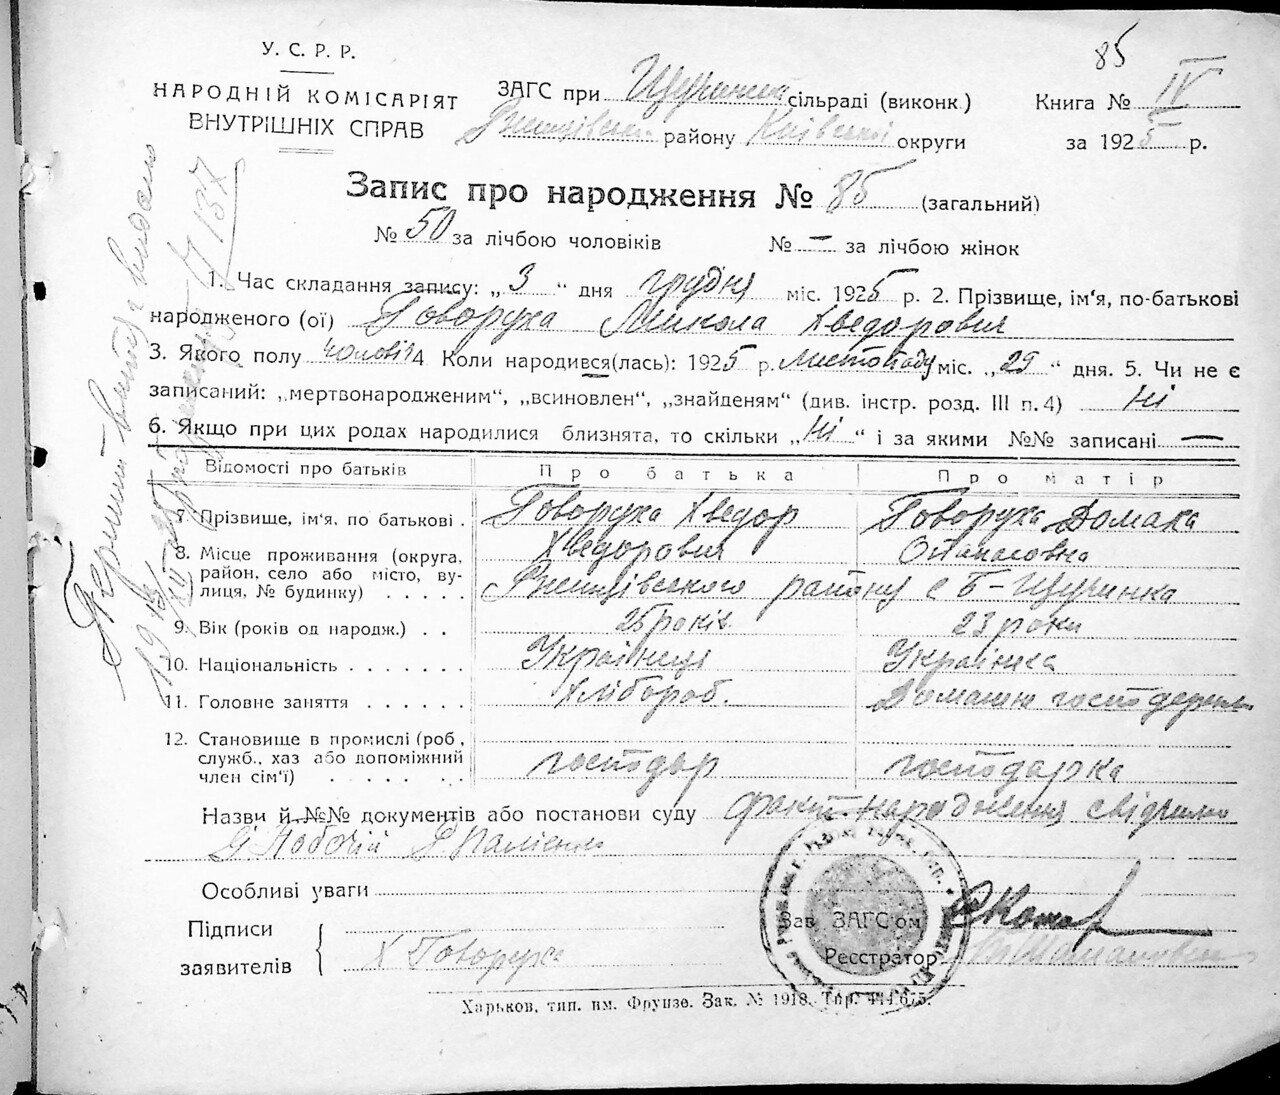 85
У. С. Р. Р.
НАРОДНІЙ КОМІСАРІЯТ
ВНУТРІШНІХ СПРАВ
ЗАГС при Щучинці сільраді (виконк.)
Ржищівськ району Київської округи
Книга № IV
за 1925 р.
Запис про народження № 85 (загальний)
№ 50 за лічбою чоловіків № — за лічбою жінок
1. Час складання запису: „3“ дня грудня міс. 1925 р. 2. Прізвище, ім'я, по-батькові
народженого (ої) Говоруха Микола Хведорович
3. Якого полу чоловіч 4 Коли народився(лась): 1925 р. Листопаду міс. „29“ дня. 5. Чи не є
записаний: „мертвонародженим“, „всиновлен“, „знайденям“ (див. інстр. розд. III п. 4) Ні
6. Якщо при цих родах народилися близнята, то скільки „Ні“ і за якими №№ записані —
Відомості про батьків Про батька Про матір
7. Прізвище, ім'я, по батькові . Говоруха Хведор Говоруха Домаха
Хведорович Опанасовна
8. Місце проживання (округа,
район, село або місто, ву-
лиця, № будинку) . . . . . Ржищівського району с Б-Щучинка
9. Вік (років од народж.) . . 25 років 23 роки
10. Національність . . . . . . . Українець Українка
11. Головне заняття . . . . . . Хлібороб. Домашнє
12. Становище в промислі (роб.,
служб., хаз або допоміжний
член сім'ї) . . . . . . господар господарка
Назви й №№ документів або постанови суду факт народження свідчили
Особливі уваги
Підписи
заявителів Х Говоруха
Зав ЗАГС'ом
Реєстратор
Харьков, тип. им. Фрунзе. Зак. № 1918. Тир. 444.675.